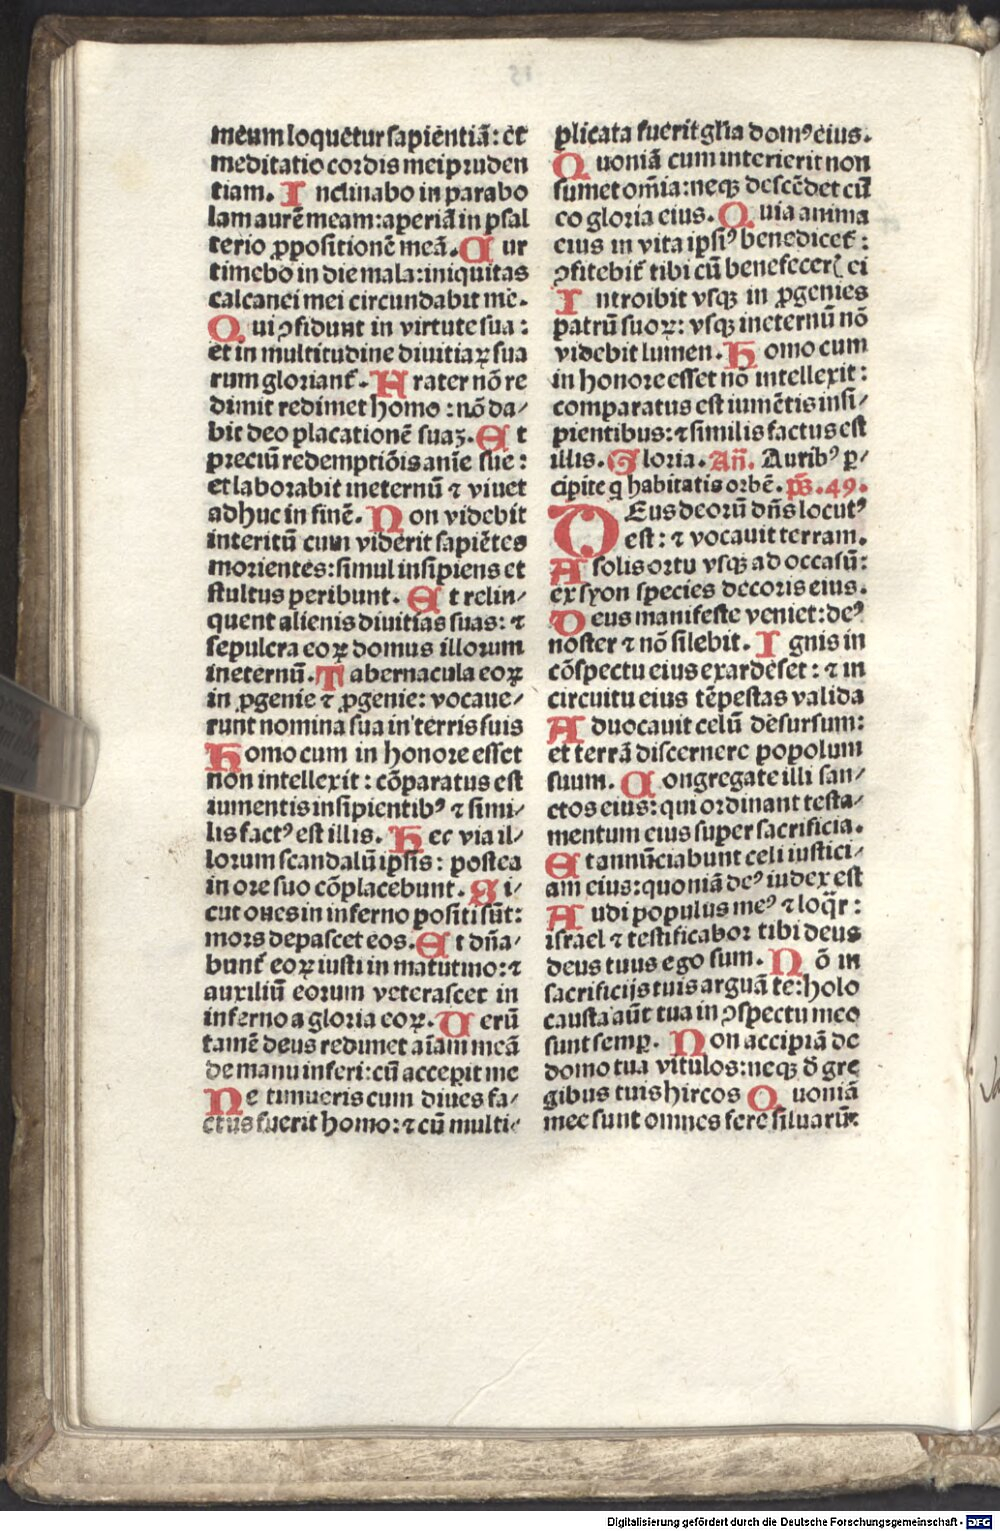 meum loquetur sapientiã: et
meditatio cordis mei pruden
tiam. Inclinabo in parabo
lam aurẽ meam: aperiã in psal
terio ꝓpositionẽ meã. Cur
timebo in die mala: iniquitas
calcanei mei circundabit me.
Qui ꝯfidunt in virtute sua:
et in multitudine diuitiaꝝ sua
rum gloriant̃. Frater nõ re
dimit redimet homo: nõ da⸗
bit deo placationẽ suaꝫ. Et
preciũ redemptiõis anĩe sue:
et laborabit ineternũ ⁊ viuet
adhuc in finẽ. Non videbit
interitũ cum viderit sapiẽtes
morientes: simul insipiens et
stultus peribunt. Et relin⸗
quent alienis diuitias suas: ⁊
sepulcra eoꝝ domus illorum
ineternũ. Tabernacula eoꝝ
in ꝓgenie ⁊ ꝓgenie: vocaue⸗
runt nomina sua in terris suis
Homo cum in honore esset
non intellexit: cõparatus est
iumentis insipientibꝰ ⁊ simi⸗
lis factꝰ est illis. Hec via il⸗
lorum scandalũ ipsis: postea
in ore suo cõplacebunt. Si⸗
cut oues in inferno positi sũt:
mors depascet eos. Et dña⸗
bunt̃ eoꝝ iusti in matutino: ⁊
auxiliũ eorum veterascet in
inferno a gloria eoꝝ. Verũ
tamẽ deus redimet aĩam meã
de manu inferi: cũ acceperit me
Ne timueris cum diues fa⸗
ctus fuerit homo: ⁊ cũ multi⸗
plicata fuerit glĩa domꝰ eius.
Quoniã cum interierit non
sumet om̃ia: neqꝫ descẽdet cũ
eo gloria eius. Quia anima
eius in vita ipsiꝰ benedicet̃:
ꝯfitebit̃ tibi cũ benefecer̃ ei
Introibit vsqꝫ in ꝓgenies
patrũ suoꝝ: vsqꝫ ineternũ nõ
videbit lumen. Homo cum
in honore esset nõ intellexit:
comparatus est iumẽtis insi⸗
pientibus: ⁊ similis factus est
illis. Gloria. Añ. Auribꝰ ꝑ⸗
cipite q̇ habitatis orbẽ. ps̃. 49.
DEus deorũ dñs locutꝰ
est: ⁊ vocauit terram.
A solis ortu vsqꝫ ad occasũ:
ex syon species decoris eius.
Deus manifeste veniet: deꝰ
noster ⁊ nõ silebit. Ignis in
cõspectu eius exardeset: ⁊ in
circuitu eius tẽpestas valida
Aduocauit celũ desursum:
et terrã discernere popolum
suum. Congregate illi san⸗
ctos eius: qui ordinant testa⸗
mentum eius super sacrificia.
Et annũciabunt celi iustici⸗
am eius: quoniã deꝰ iudex est
Audi populus meꝰ ⁊ loq̃r:
israel ⁊ testificabor tibi deus
deus tuus ego sum. Nõ in
sacrificijs tuis arguã te: holo
causta aũt tua in ꝯspectu meo
sunt semꝑ. Non accipiã de
domo tua vitulos: neqꝫ d̃ gre
gibus tuis hircos Quoniã
mee sunt omnes fere siluarũ:
Digitalisierung gefördert durch die Deutsche Forschungsgemeinschaft - DFG